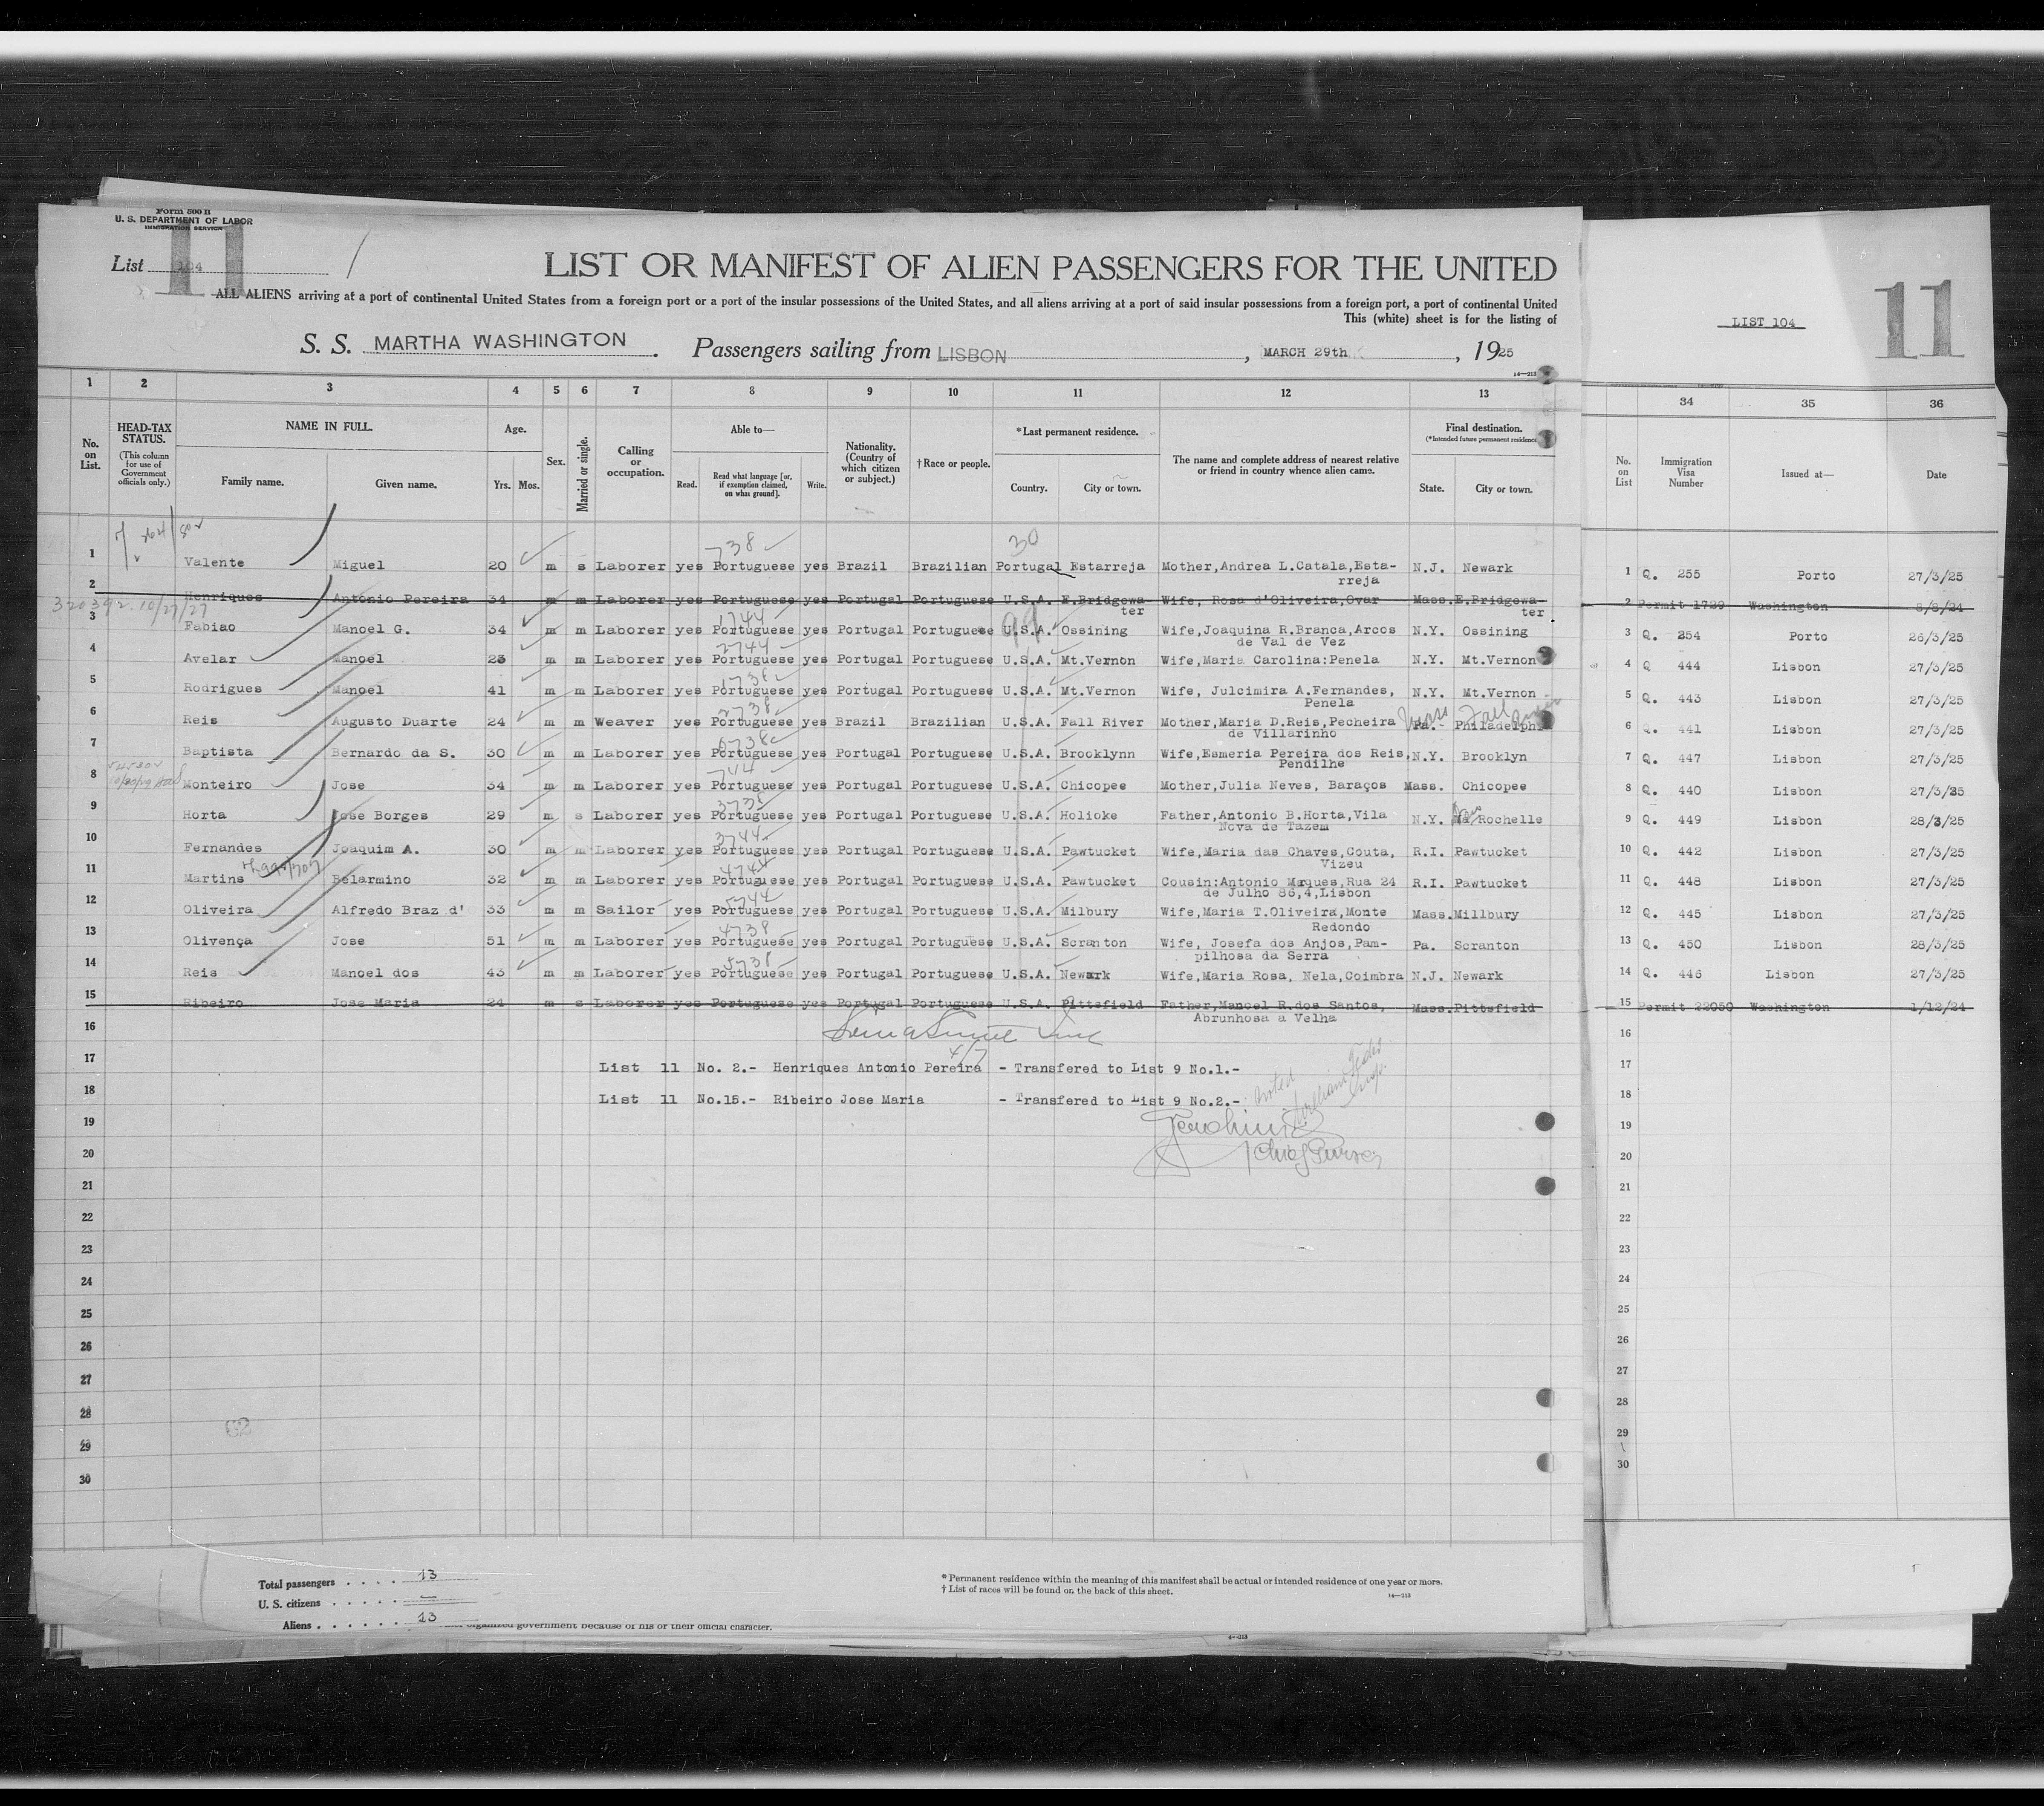 Form 500 B
U. S. DEPARTMENT OF LABOR
IMMIGRATION SERVICE
11
List 104
LIST OR MANIFEST OF ALIEN PASSENGERS FOR THE UNITED
ALL ALIENS arriving at a port of continental United States from a foreign port or a port of the insular possessions of the United States, and all aliens arriving at a port of said insular possessions from a foreign port, a port of continental United
This (white) sheet is for the listing of
S. S. MARTHA WASHINGTON. Passengers sailing from LISBON, MARCH 29th, 1925
14—213
LIST 104
11
1 2 3 4 5 6 7 8 9 10 11 12 13 34 35 36
No. on List.
HEAD-TAX STATUS. (This column for use of Government officials only.)
NAME IN FULL.
Family name. Given name.
Age.
Yrs. Mos.
Sex.
Married or single.
Calling or occupation.
Able to—
Read. Read what language [or, if exemption claimed, on what ground]. Write.
Nationality. (Country of which citizen or subject.)
† Race or people.
*Last permanent residence.
Country. City or town.
The name and complete address of nearest relative or friend in country whence alien came.
Final destination.
(*Intended future permanent residence)
State. City or town.
No. on List
Immigration Visa Number
Issued at—
Date
738 30
1 Valente Miguel 20 m s Laborer yes Portuguese yes Brazil Brazilian Portugal Estarreja Mother,Andrea L.Catala,Esta-rreja N.J. Newark 1 Q. 255 Porto 27/3/25
2 Henriques Antonio Pereira 34 m m Laborer yes Portuguese yes Portugal Portuguese U.S.A. E.Bridgewa-ter Wife, Rosa d'Oliveira,Ovar Mass. E.Bridgewa-ter 2 Permit 1729 Washington 8/8/24
320392. 10/27/27
1744 99
3 Fabiao Manoel G. 34 m m Laborer yes Portuguese yes Portugal Portuguese U.S.A. Ossining Wife,Joaquina R.Branca,Arcos de Val de Vez N.Y. Ossining 3 Q. 254 Porto 26/3/25
2744
4 Avelar Manoel 23 m m Laborer yes Portuguese yes Portugal Portuguese U.S.A. Mt.Vernon Wife,Maria Carolina:Penela N.Y. Mt.Vernon 4 Q 444 Lisbon 27/3/25
1738
5 Rodrigues Manoel 41 m m Laborer yes Portuguese yes Portugal Portuguese U.S.A. Mt.Vernon Wife, Julcimira A.Fernandes, Penela N.Y. Mt.Vernon 5 Q. 443 Lisbon 27/3/25
2738 Mass Fall River
6 Reis Augusto Duarte 24 m m Weaver yes Portuguese yes Brazil Brazilian U.S.A. Fall River Mother,Maria D.Reis,Pecheira de Villarinho Pa. Philadelph 6 Q. 441 Lisbon 27/3/25
7 Baptista Bernardo da S. 30 m m Laborer yes Portuguese yes Portugal Portuguese U.S.A. Brooklynn Wife,Esmeria Pereira dos Reis, Pendilhe N.Y. Brooklyn 7 Q. 447 Lisbon 27/3/25
744
8 Monteiro Jose 34 m m Laborer yes Portuguese yes Portugal Portuguese U.S.A. Chicopee Mother,Julia Neves, Baraços Mass. Chicopee 8 Q. 440 Lisbon 27/3/25
3738
9 Horta Jose Borges 29 m s Laborer yes Portuguese yes Portugal Portuguese U.S.A. Holioke Father,Antonio B.Horta,Vila Nova de Tazem N.Y. Rochelle 9 Q. 449 Lisbon 28/3/25
3744
10 Fernandes Joaquim A. 30 m m Laborer yes Portuguese yes Portugal Portuguese U.S.A. Pawtucket Wife,Maria das Chaves,Couta, Vizeu R.I. Pawtucket 10 Q. 442 Lisbon 27/3/25
4744
11 Martins Belarmino 32 m m Laborer yes Portuguese yes Portugal Portuguese U.S.A. Pawtucket Cousin:Antonio Mrques,Rua 24 de Julho 86,4,Lisbon R.I. Pawtucket 11 Q. 448 Lisbon 27/3/25
5744
12 Oliveira Alfredo Braz d' 33 m m Sailor yes Portuguese yes Portugal Portuguese U.S.A. Milbury Wife,Maria T.Oliveira,Monte Redondo Mass. Millbury 12 Q. 445 Lisbon 27/3/25
4738
13 Olivença Jose 51 m m Laborer yes Portuguese yes Portugal Portuguese U.S.A. Scranton Wife, Josefa dos Anjos,Pam-pilhosa da Serra Pa. Scranton 13 Q. 450 Lisbon 28/3/25
5738
14 Reis Manoel dos 43 m m Laborer yes Portuguese yes Portugal Portuguese U.S.A. Newark Wife,Maria Rosa, Nela,Coimbra N.J. Newark 14 Q. 446 Lisbon 27/3/25
15 Ribeiro Jose Maria 24 m s Laborer yes Portuguese yes Portugal Portuguese U.S.A. Pittsfield Father,Manoel R.dos Santos, Abrunhosa a Velha Mass. Pittsfield 15 Permit 22050 Washington 1/12/24
16 16
4/7
17 List 11 No. 2.- Henriques Antonio Pereira - Transfered to List 9 No.1.- 17
18 List 11 No.15.- Ribeiro Jose Maria - Transfered to List 9 No.2.- 18
noted
19 19
20 Chief Purser 20
21 21
22 22
23 23
24 24
25 25
26 26
27 27
28 28
62
29 29
30 30
Total passengers . . . . 13
U. S. citizens . . . . . —
Aliens . . . . . . 13
* Permanent residence within the meaning of this manifest shall be actual or intended residence of one year or more.
† List of races will be found on the back of this sheet.
14—213
organized government because of his or their official character.